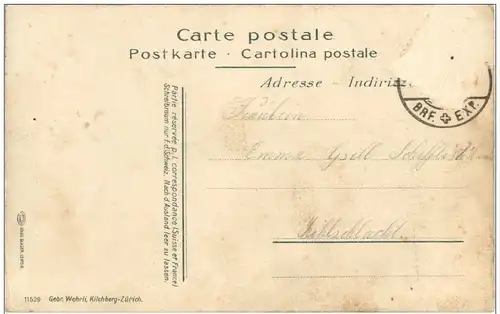 Carte postale
Postkarte · Cartolina postale
Adresse - Indiriz
BRF. EXP.
Partie réservée p. l. correspondance (Suisse et France)
Schreibraum nur f. d. Schweiz. Nach d'Ausland leer zu lassen.
Fräulein
Emma
11529 Gebr. Wehrli, Kilchberg-Zürich.